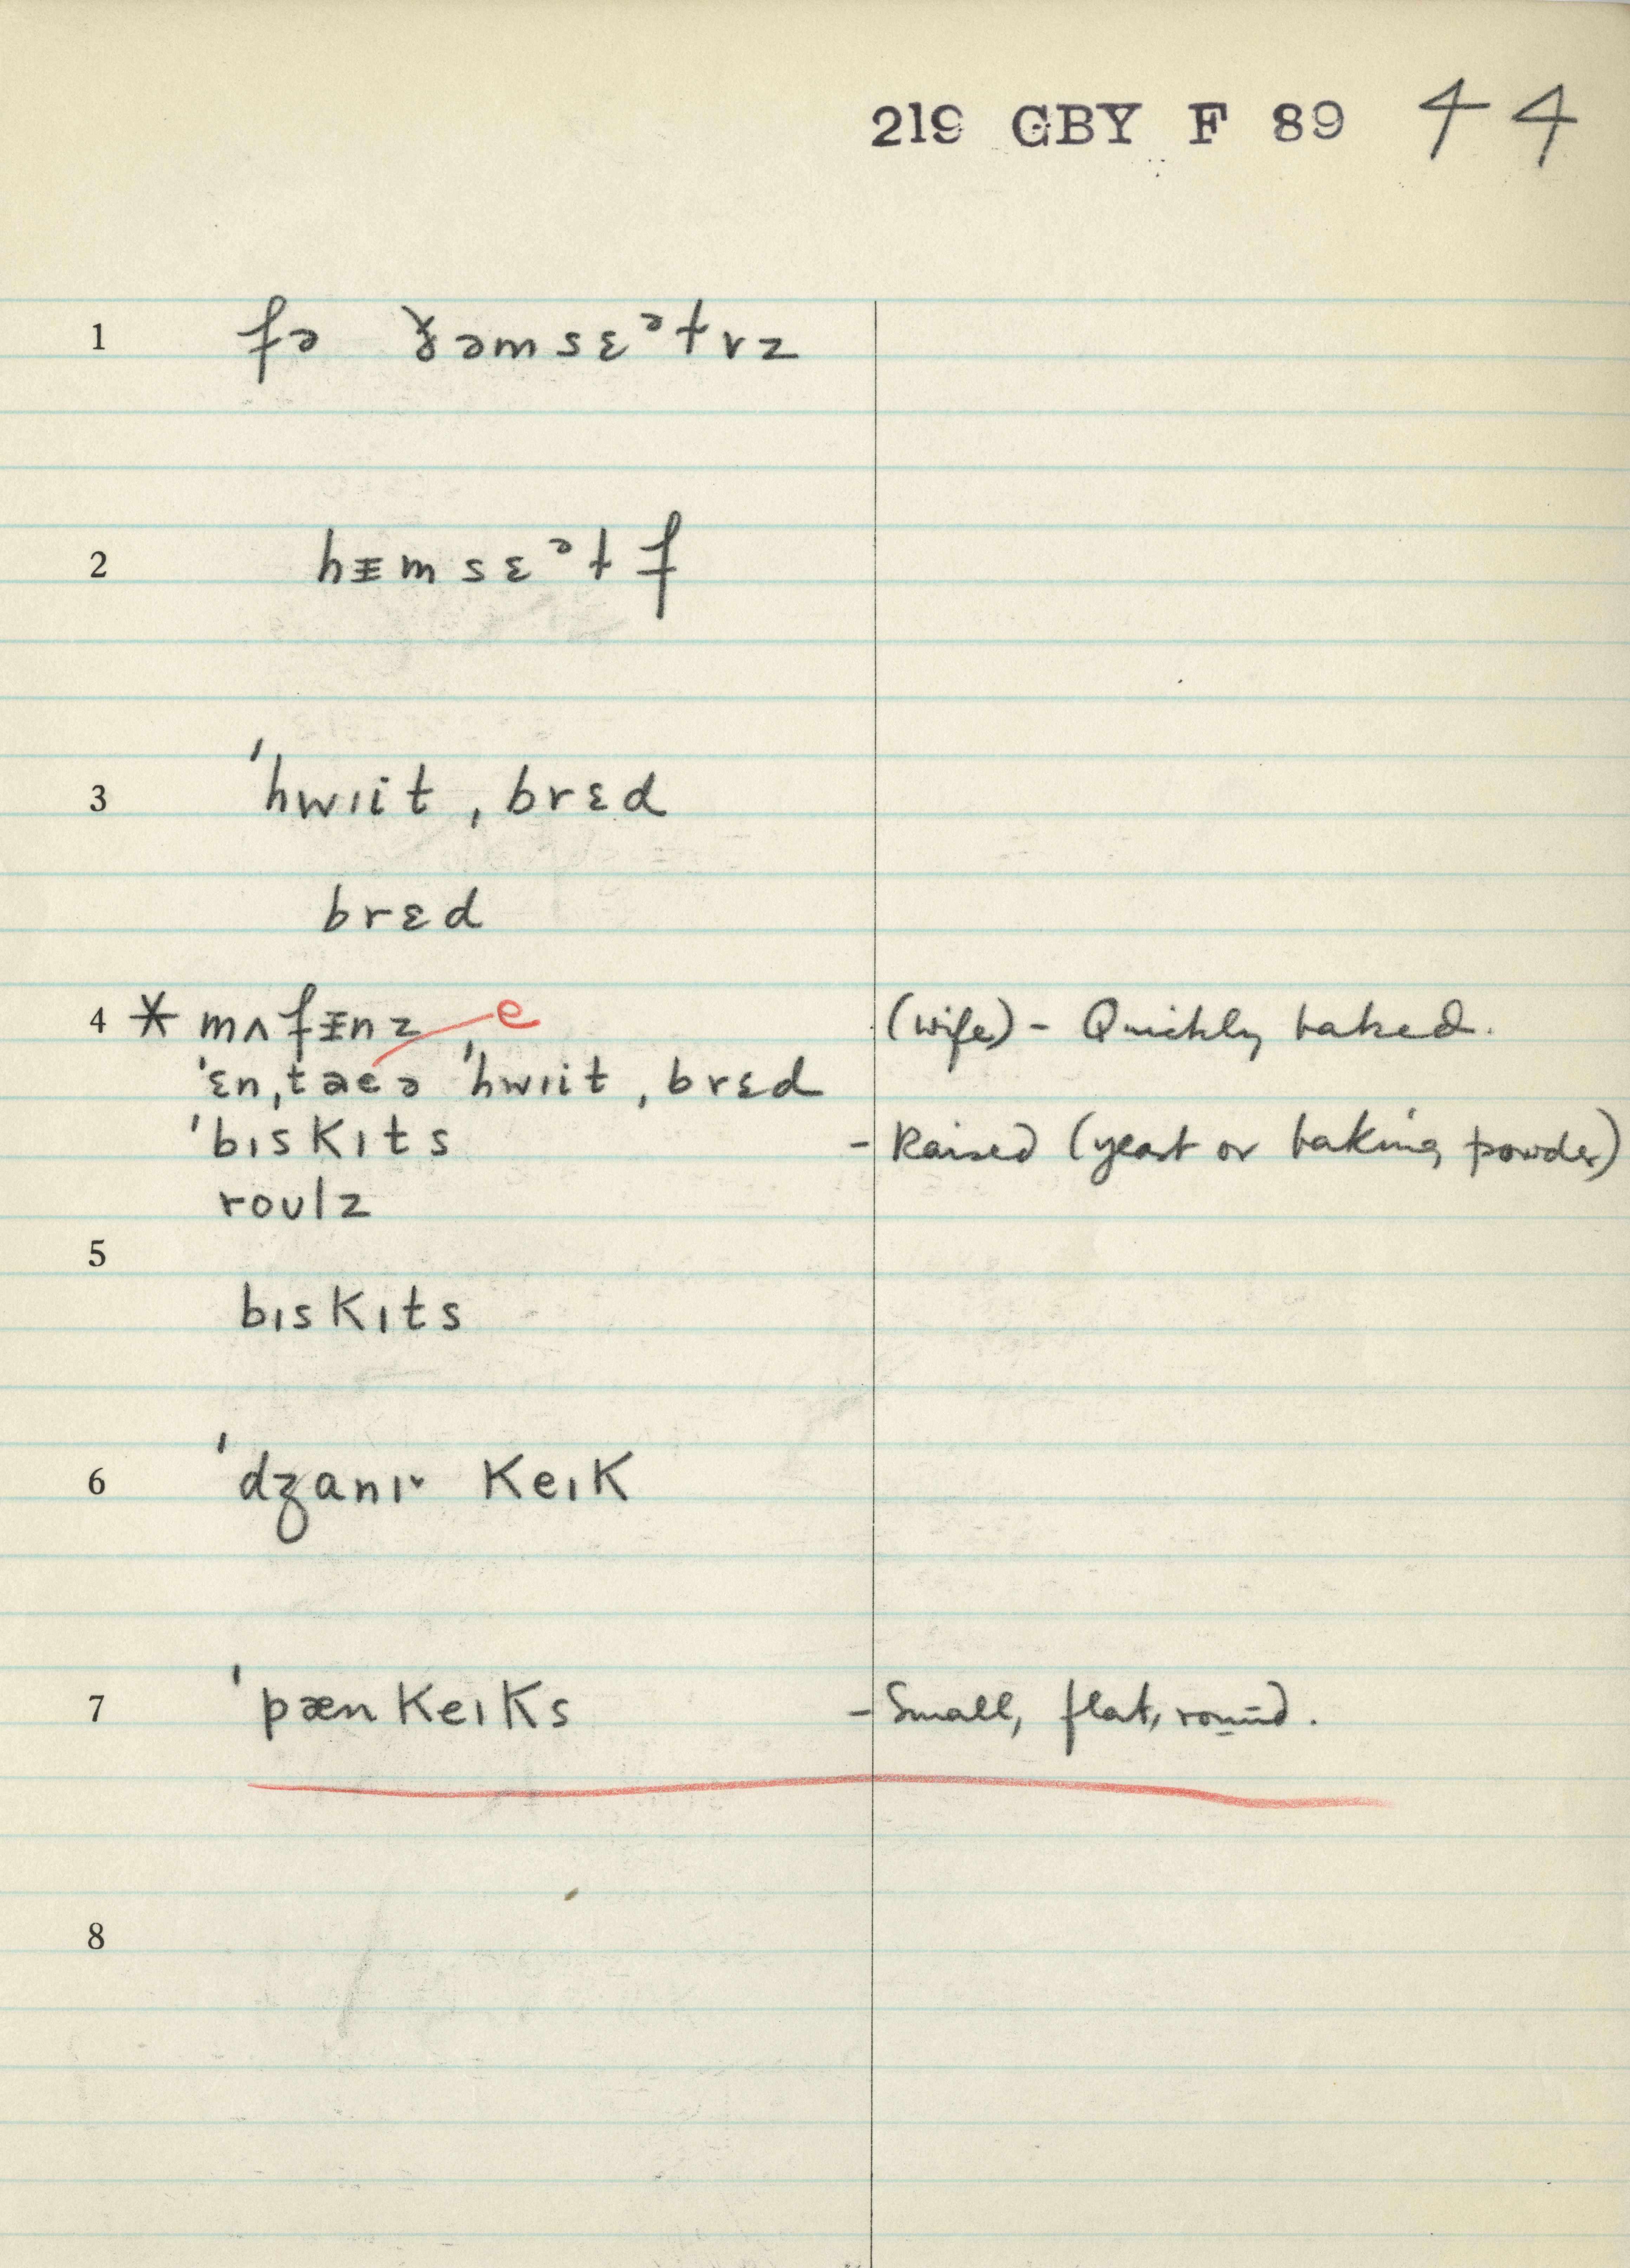 219 GBY F 89 44
1 fə ɣəmsɛᵊtvz
2 hᵻmsɛᵊtf
3 ˈhwɪit ˌbrɛd
brɛd
4 * mʌfᵻnz e (wife) - Quickly baked.
ˈɛnˌtaeə ˈhwɪit ˌbrɛd
ˈbɪskɪts - Raised (yeast or baking powder)
roʊlz
5
bɪskɪts
6 ˈdʒanɪ˅ keɪk
7 ˈpænkeɪks - Small, flat, round.
8